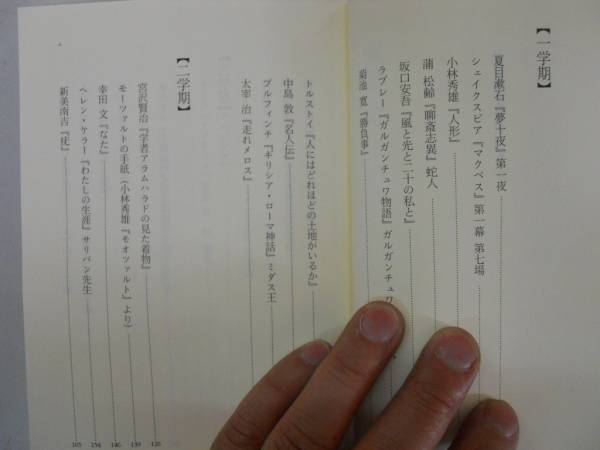 【一学期】
夏目漱石『夢十夜』第一夜
シェイクスピア『マクベス』第一幕 第七場
小林秀雄『人形』
蒲 松齢『聊斎志異』蛇人
坂口安吾『風と光と二十の私と』
ラブレー『ガルガンチュワ物語』ガルガンチュワ
菊池 寛『勝負事』
トルストイ『人にはどれほどの土地がいるか』
中島 敦『名人伝』
ブルフィンチ『ギリシア・ローマ神話』ミダス王
太宰 治『走れメロス』
【二学期】
宮沢賢治『学者アラムハラドの見た着物』 128
モーツァルトの手紙(小林秀雄『モオツァルト』より) 139
幸田 文『なた』 146
ヘレン・ケラー『わたしの生涯』サリバン先生 154
新美南吉『疣』 165